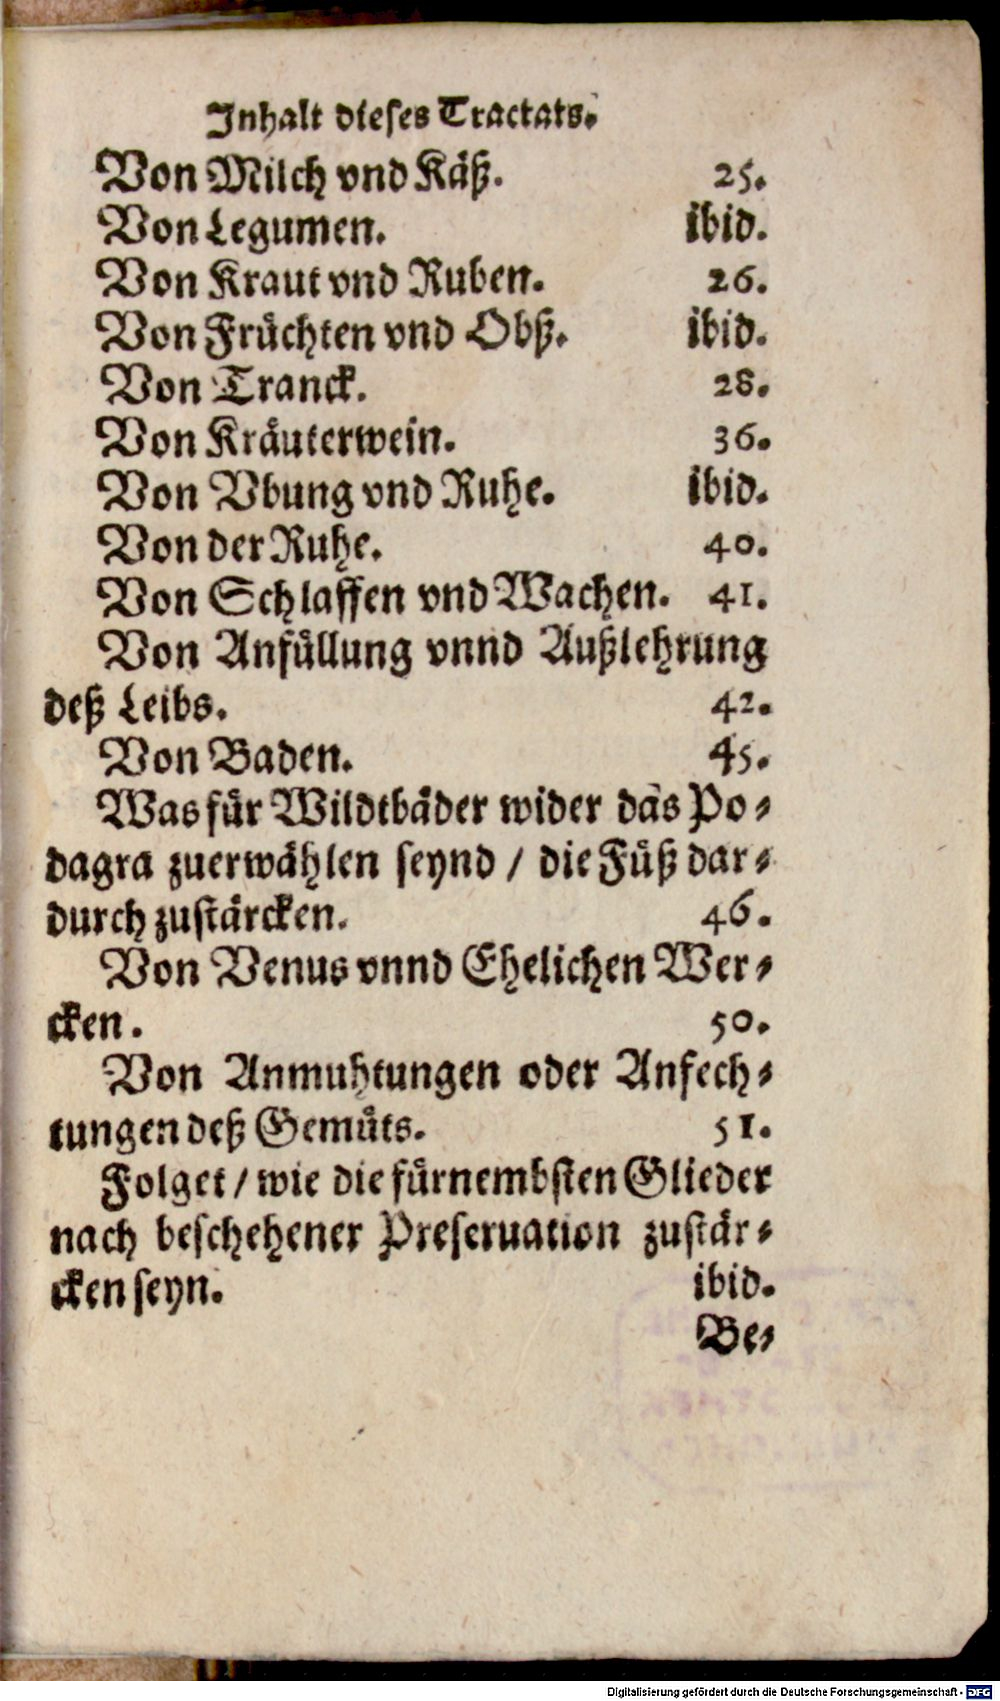 Inhalt dieses Tractats.
Von Milch vnd Käß. 25.
Von Legumen. ibid.
Von Kraut vnd Ruben. 26.
Von Früchten vnd Obß. ibid.
Von Tranck. 28.
Von Kräuterwein. 36.
Von Vbung vnd Ruhe. ibid.
Von der Ruhe. 40.
Von Schlaffen vnd Wachen. 41.
Von Anfüllung vnnd Außlehrung
deß Leibs. 42.
Von Baden. 45.
Was für Wildtbäder wider das Po-
dagra zuerwählen seynd / die Füß dar-
durch zustärcken. 46.
Von Venus vnnd Ehelichen Wer-
cken. 50.
Von Anmuhtungen oder Anfech-
tungen deß Gemüts. 51.
Folget / wie die fürnembsten Glieder
nach beschehener Preseruation zustär-
cken seyn. ibid.
Be-
Digitalisierung gefördert durch die Deutsche Forschungsgemeinschaft - DFG